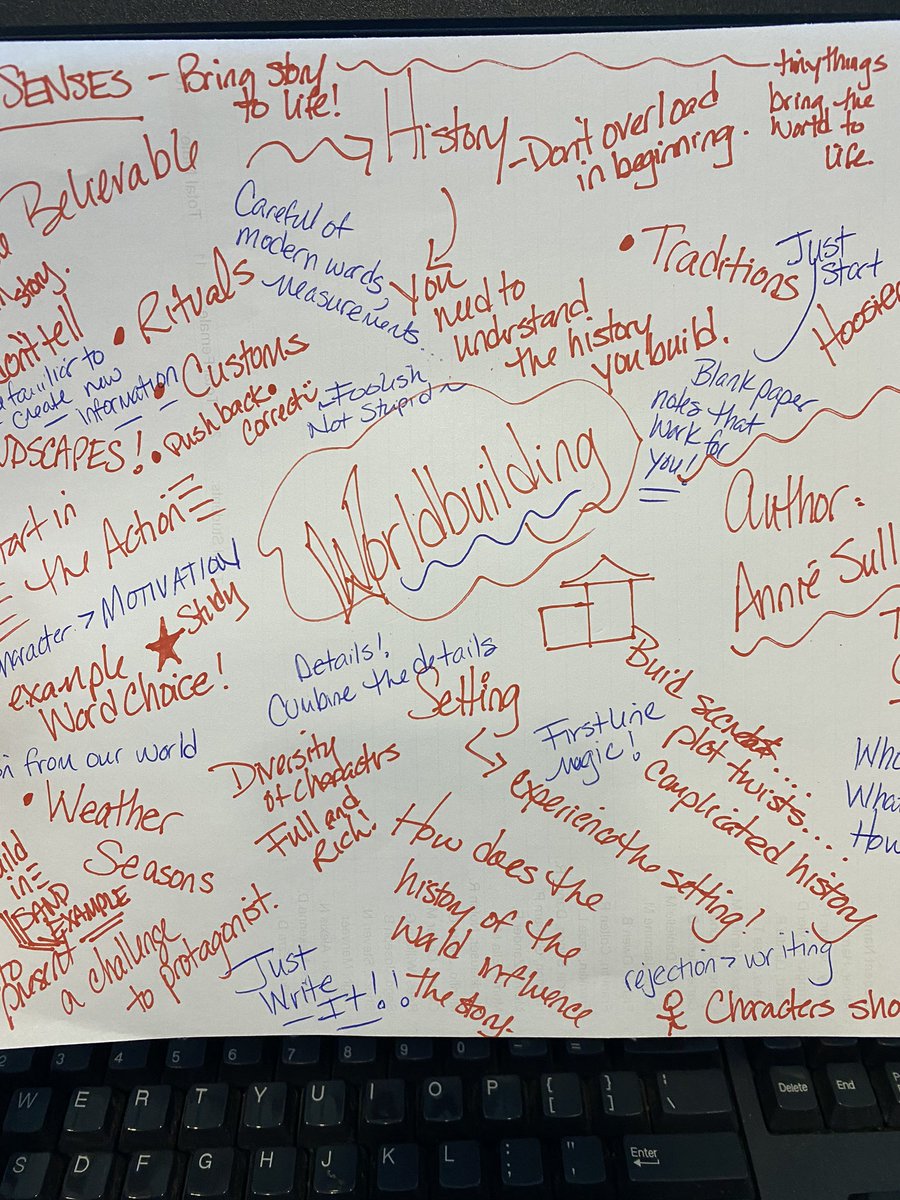 SENSES - Bring story
to life!
tiny things
bring the
world to
life.
History - Don't overload
in beginning.
Believable
Careful of
modern words,
measurements...
You
need to
understand
the history
you build.
• Traditions
Just
start
Hoosier
story.
• Rituals
familiar to
create new
information
• Customs
• pushback •
~ Foolish
Not Stupid ~
Blank paper
notes that
work for
you!
DSCAPES!
Worldbuilding
Author:
Annie Sull
tart in
the Action
> MOTIVATION
Study
example
Word Choice!
Details!
Combine the details
Setting
experience the setting!
First line
magic!
Build secrets...
plot twists...
complicated history
from our world
Diversity
of characters
Full and
Rich!
• Weather
Seasons
How does the
history of the
world influence
the story.
Who
What
How
uild
in
BAND
EXAMPLE
to
present
a challenge
to protagonist.
Just
Write
It!!
rejection > writing
Characters sho
2 3 4 5 6 7 8 9 0 - =
W E R T Y U I O P { [ } ] | \
Delete End
S D F G H J K L : ; " ' Enter